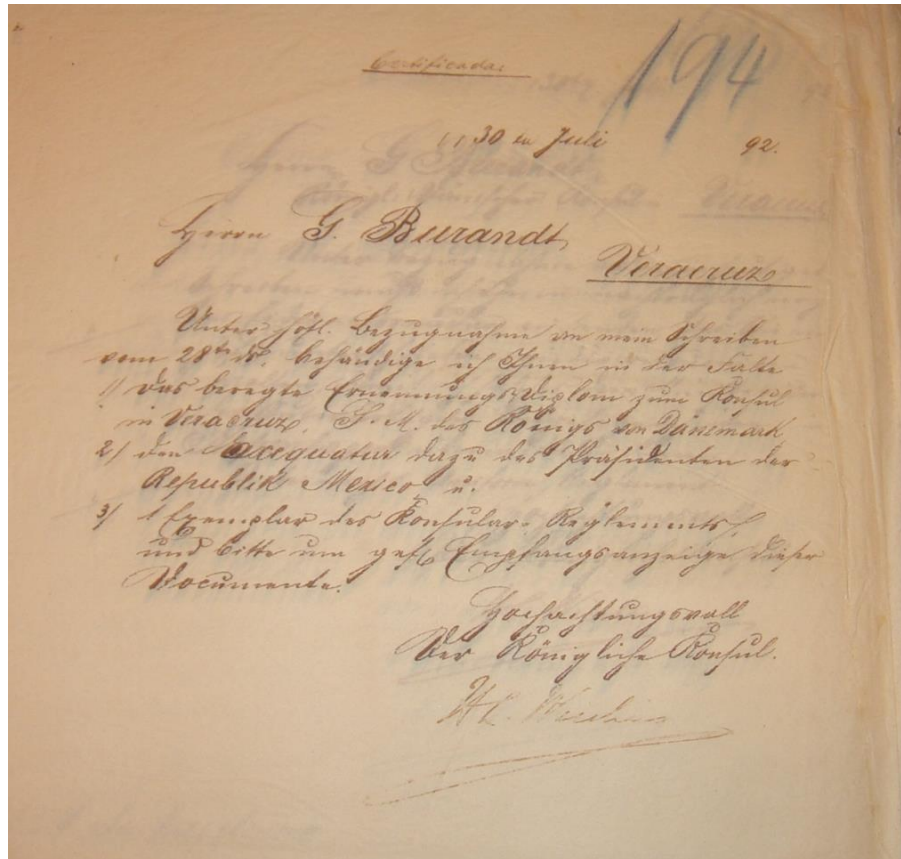 Certificada.
194
30 Juli 92.
Herrn G. Burandt,
Veracruz
Unter höfl. Bezugnahme an mein Schreiben
vom 28ten ds. behändige ich Ihnen in der Falte
1/ das beregte Ernennungs-Diplom zum Konsul
in Veracruz, S. M. des Königs von Dänemark,
2/ den Exequatur dazu des Präsidenten der
Republik Mexico u.
3/ 1 Exemplar des Konsular-Reglements,
und bitte um gefl. Empfangsanzeige dieser
Documente.
Hochachtungsvoll
Der Königliche Konsul.